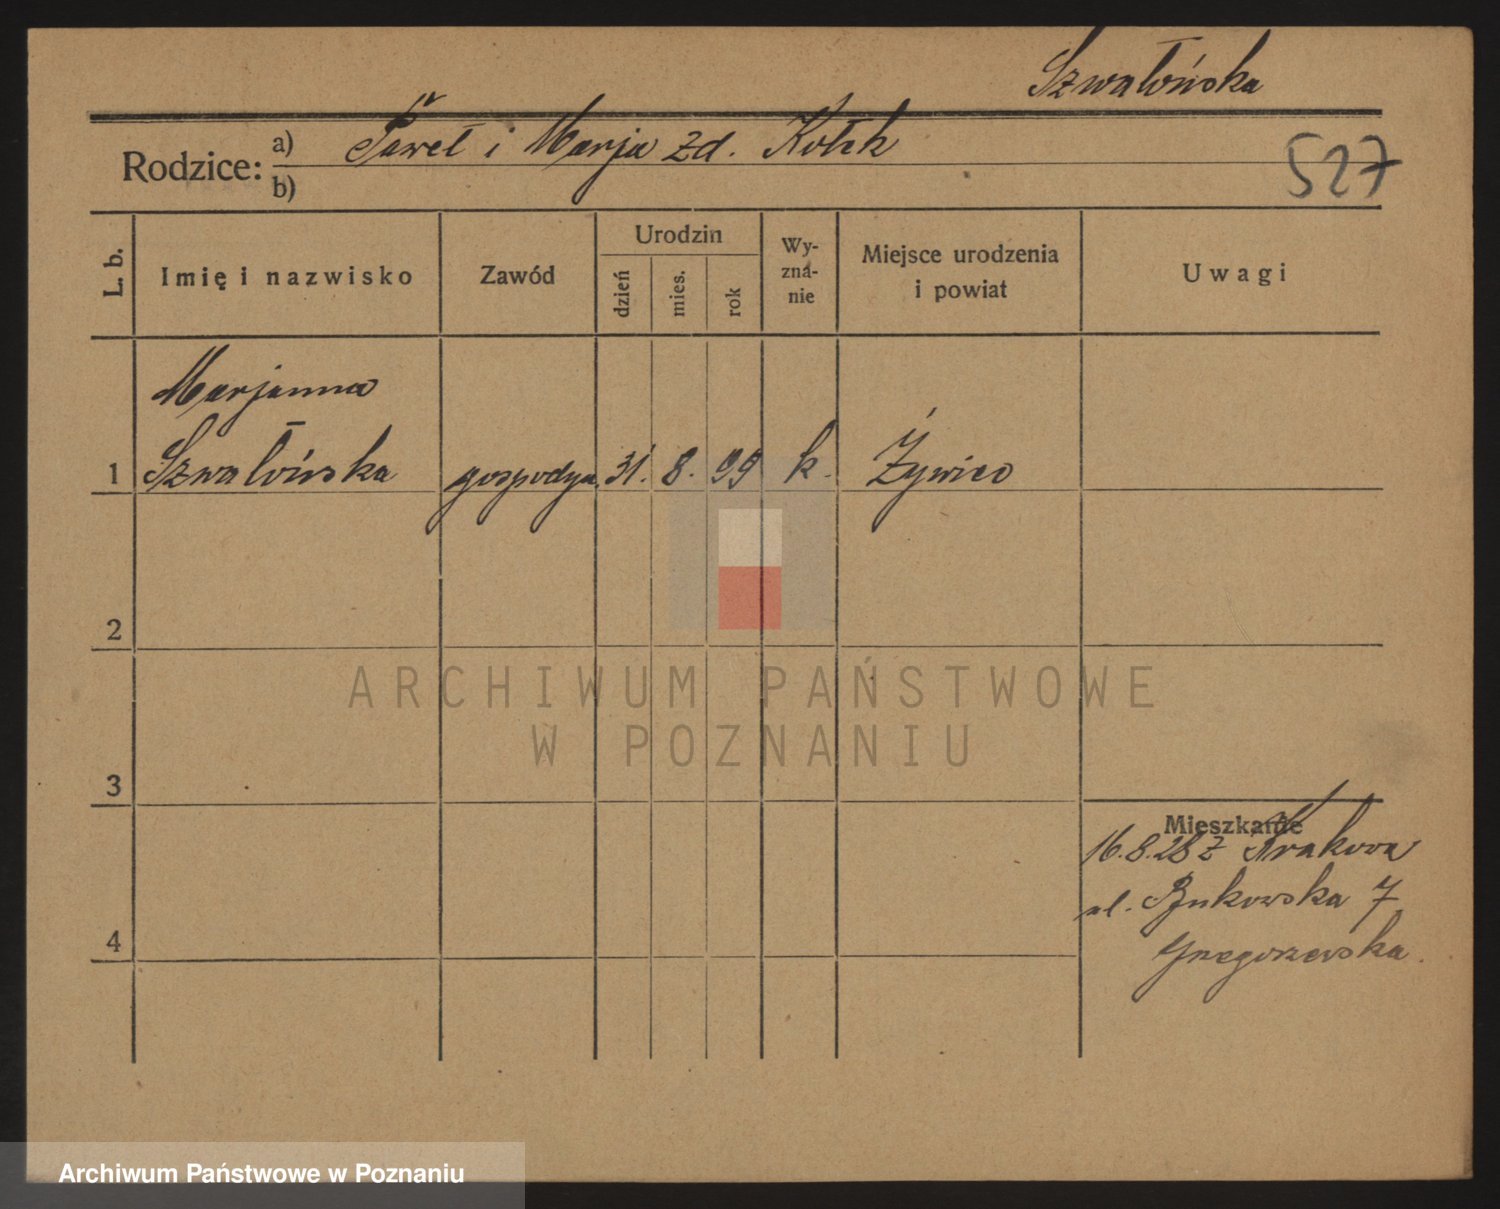 Szwałońska
Rodzice: a) Paweł i Marja zd. Kołek
b)
527
L. b.
Imię i nazwisko
Zawód
Urodzin
dzień
mies.
rok
Wy-
zna-
nie
Miejsce urodzenia
i powiat
Uwagi
Marjanna
1 Szwałońska gospodyn. 31. 8. 99 k. Żywiec
2
3
4
Mieszkanie
16.8.28 z Krakowa
ul. Bukowska 7
Gregorzewska.
ARCHIWUM PAŃSTWOWE
W POZNANIU
Archiwum Państwowe w Poznaniu